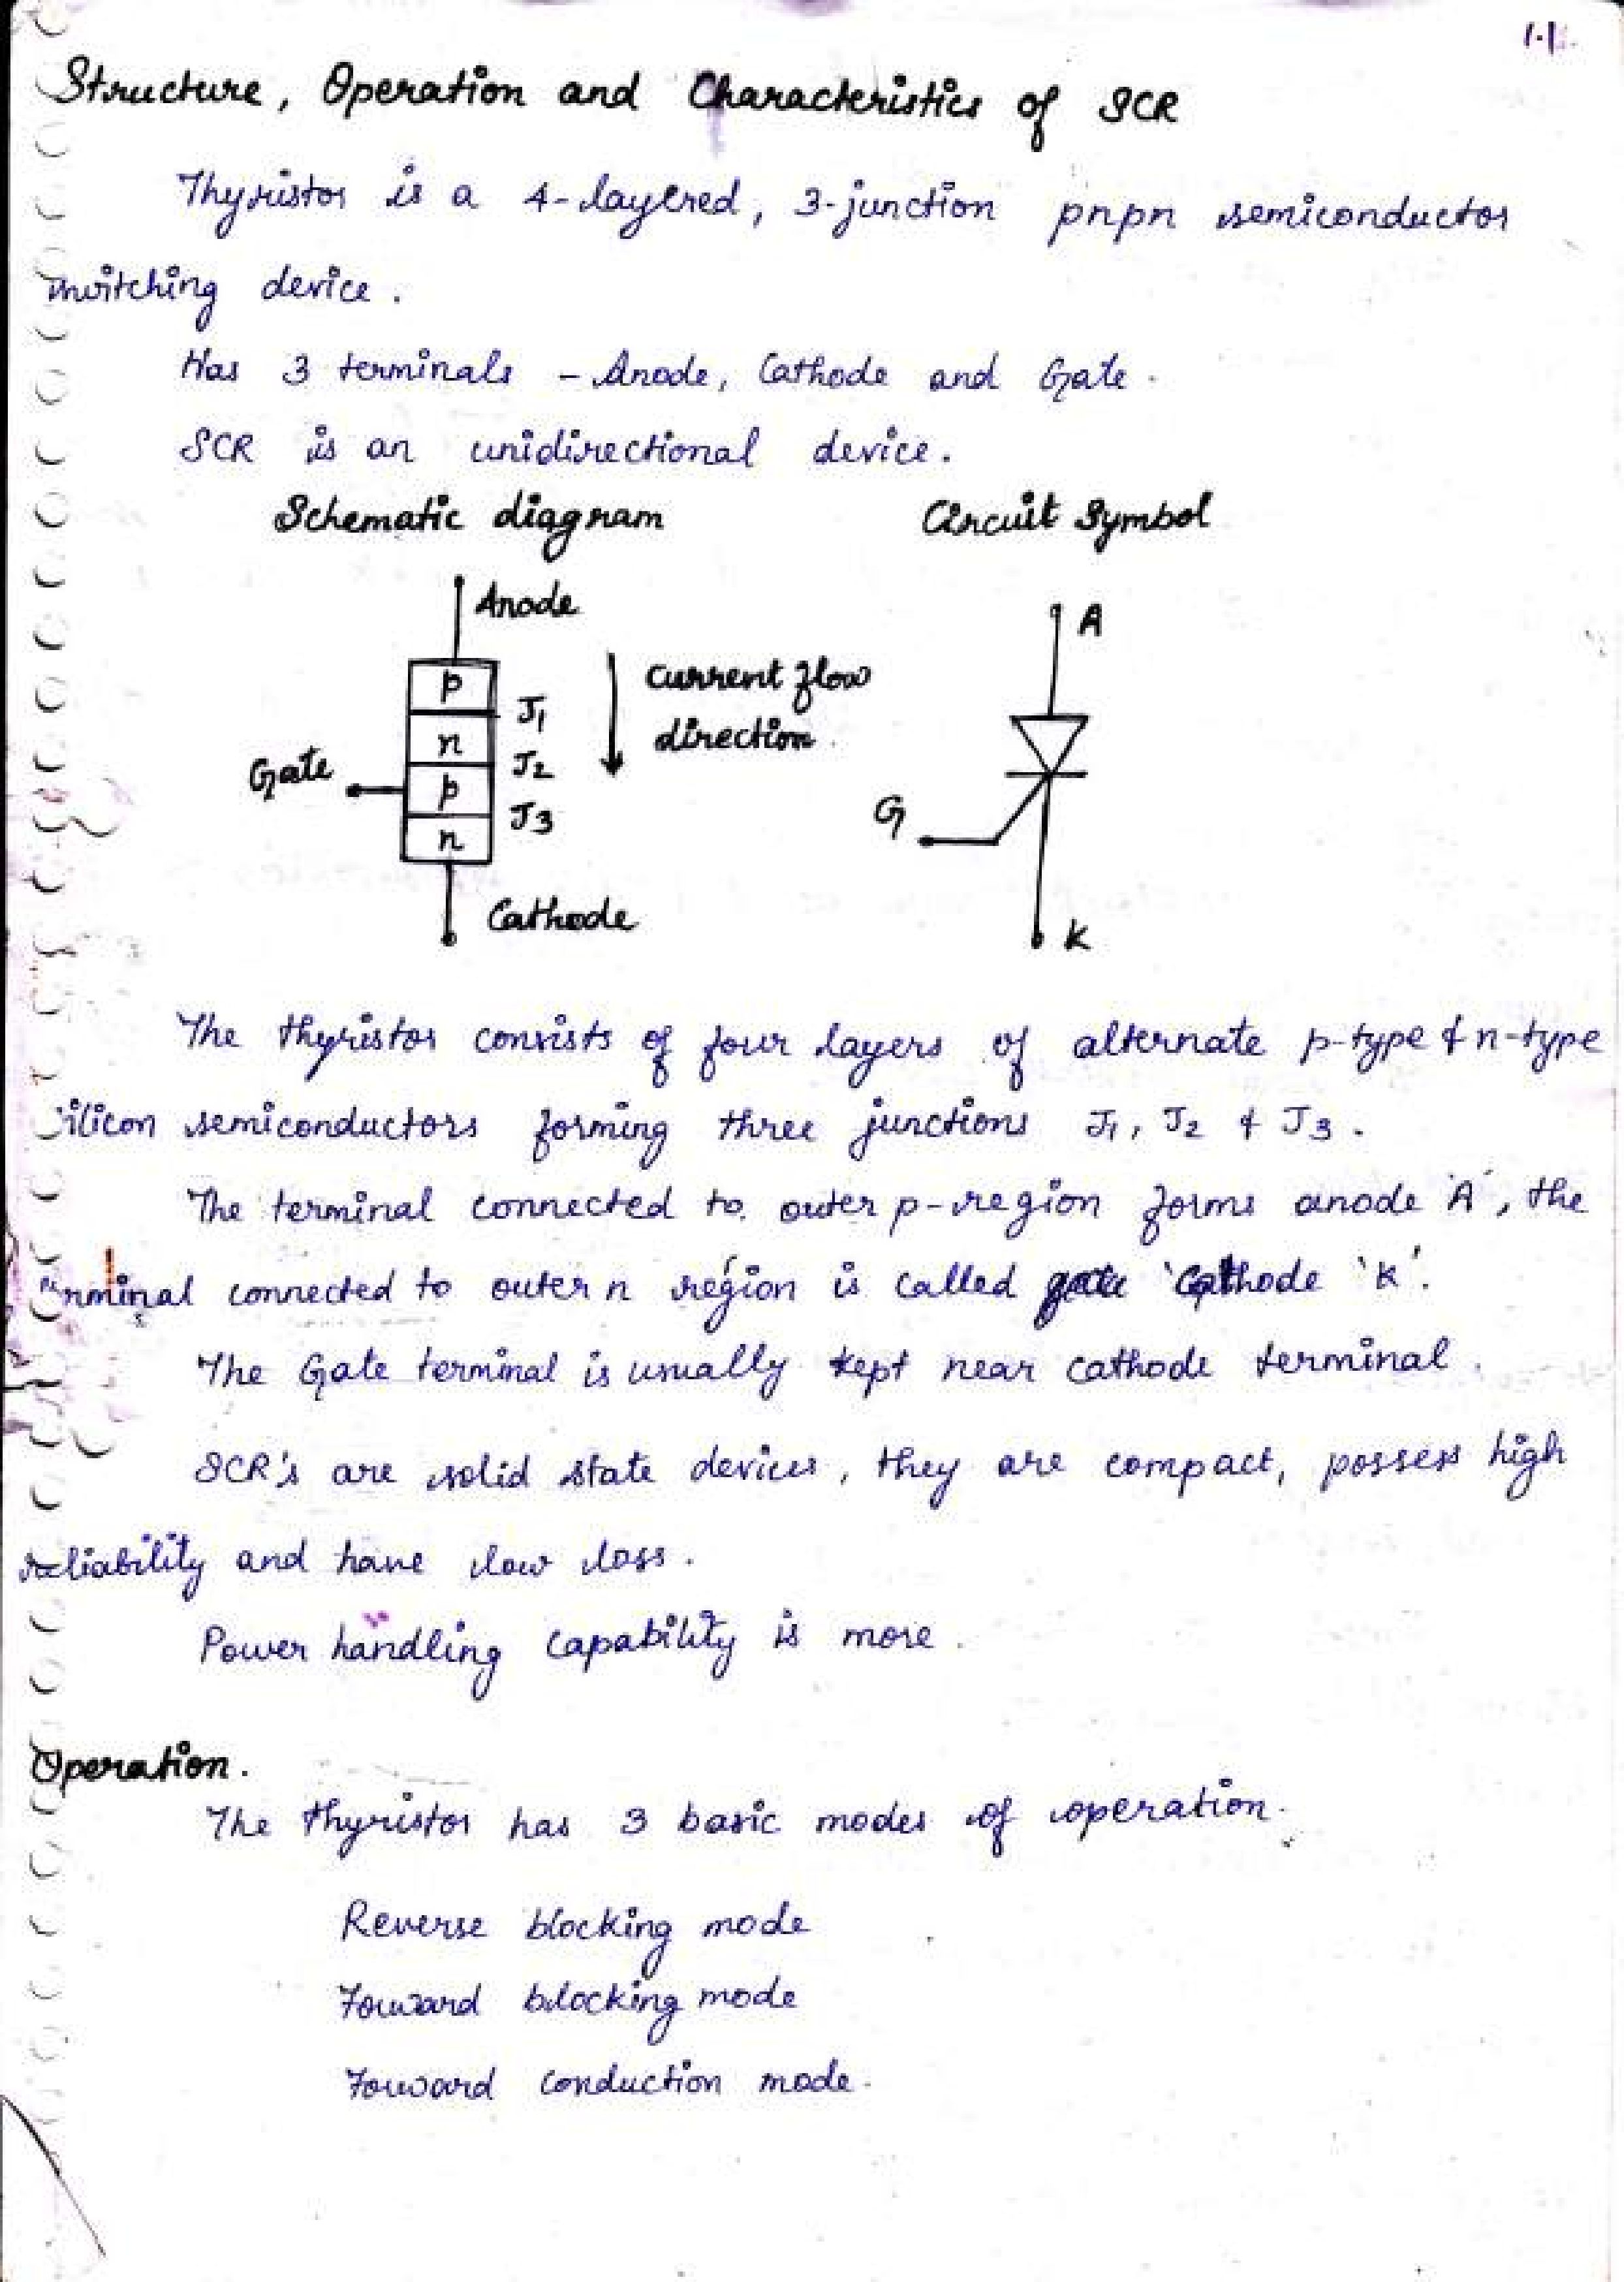 1.1
Structure, Operation and Characteristics of SCR
Thyristor is a 4-layered, 3-junction pnpn semiconductor
switching device.
Has 3 terminals - Anode, Cathode and Gate.
SCR is an unidirectional device.
Schematic diagram Circuit Symbol
Anode
A
p
Current flow
J1
n
direction
J2
Gate
p
G
J3
n
Cathode
K
The thyristor consists of four layers of alternate p-type & n-type
silicon semiconductors forming three junctions J1, J2 & J3.
The terminal connected to outer p-region forms anode 'A', the
terminal connected to outer n region is called 'Cathode 'K'.
The Gate terminal is usually kept near cathode terminal.
SCR's are solid state devices, they are compact, possess high
reliability and have low loss.
Power handling capability is more.
Operation.
The thyristor has 3 basic modes of operation.
Reverse blocking mode
Foward blocking mode
Foward conduction mode.